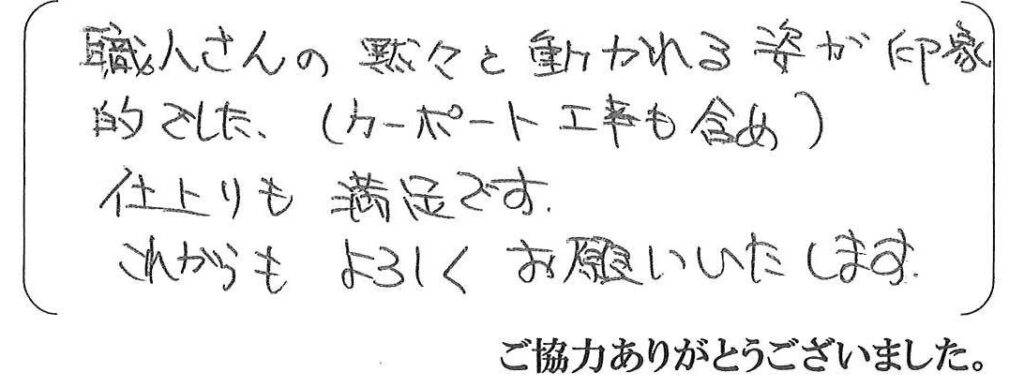 職人さんの黙々と動かれる姿が印象
的でした、(カーポート工事も含め)
仕上りも満足です.
これからもよろしくお願いいたします.
ご協力ありがとうございました。